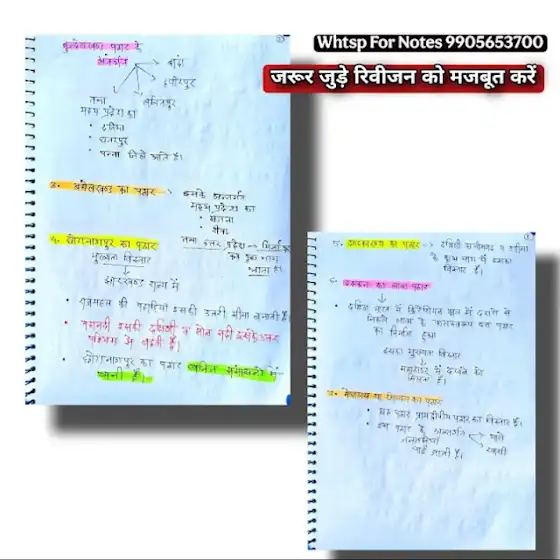 Whtsp For Notes 9905653700
जरूर जुड़े रिवीजन को मजबूत करें
बुन्देलखण्ड पठार के
अंतर्गत
बांदा
हमीरपुर
ललितपुर
तथा
मध्य प्रदेश का
• दतिया
• छतरपुर
• पन्ना जिले आते हैं।
3. बघेलखण्ड का पठार →
इसके अन्तर्गत
मध्य प्रदेश का
• सतना
• रीवा
तथा उत्तर प्रदेश →
का कुछ भाग
आता है।
4. छोटानागपुर का पठार
मुख्यतः विस्तार
झारखण्ड राज्य में
• राजमहल की पहाड़ियाँ इसकी उत्तरी सीमा बनाती हैं।
• महानदी इसकी दक्षिणी व सोन नदी इसके उत्तर
पश्चिम से बहती हैं।
• छोटानागपुर का पठार खनिज संसाधनों में
धनी है।
5. का पठार → दक्षिणी छत्तीसगढ़ व उड़ीसा
के कुछ भाग में इसका
विस्तार है।
6. दक्कन का लावा पठार
• दक्षिण भारत में क्रिटेशियस काल में दरारों से
निकले लावा के फलस्वरूप इस पठार
का निर्माण हुआ
इसका मुख्यतया विस्तार
महाराष्ट्र में देखने को
मिलता है।
7. मेघालय या शिलांग का पठार
• यह पठार प्रायद्वीपीय पठार का विस्तार है।
• इस पठार के अन्तर्गत
गारो
खासी
जनजातियां
पाई जाती हैं।